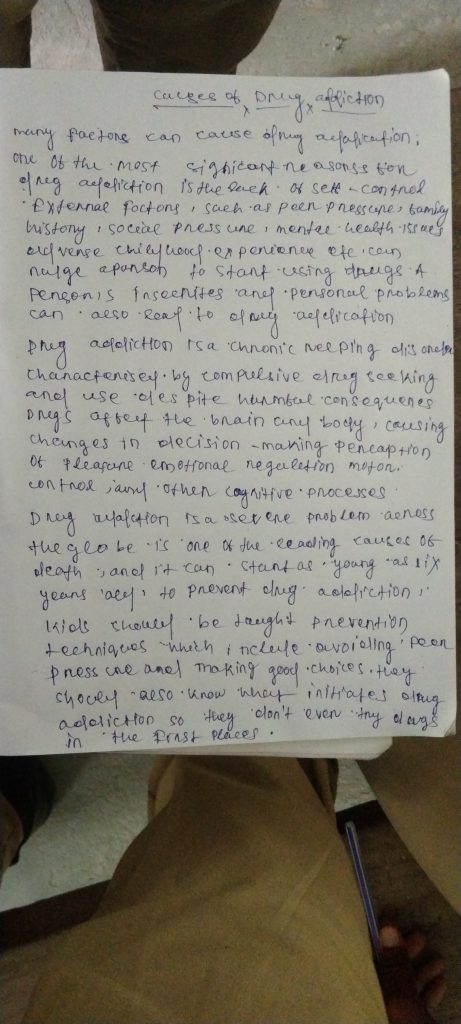 Causes of Drug addiction
many factors can cause drug addication;
one of the most significant reasonss for
drug addiction is the lack of self-control
External factors, such as peer pressure, family
history, social pressure, mental health issues
adverse childhood experience etc can
nurge a person to start using drugs. A
Person's Insecrites and personal problems
can also lead to drug addication
Drug addiction is a chronic relping disorder
characterised by compulsive drug seeking
and use despite harmful consequences
Drugs affect the brain and body, causing
changes in decision-making perception
of pleasure emotional regulation motor
control, and other cognitive processes.
Drug addiction is a severe problem across
the globe is one of the leading causes of
death, and it can start as young as six
years old, to prevent drug addiction,
Kids should be taught prevention
techniques which include avoiding peer
pressure and making good choices. they
should also know what initiates drug
addiction so they don't even try drugs
in the first places.